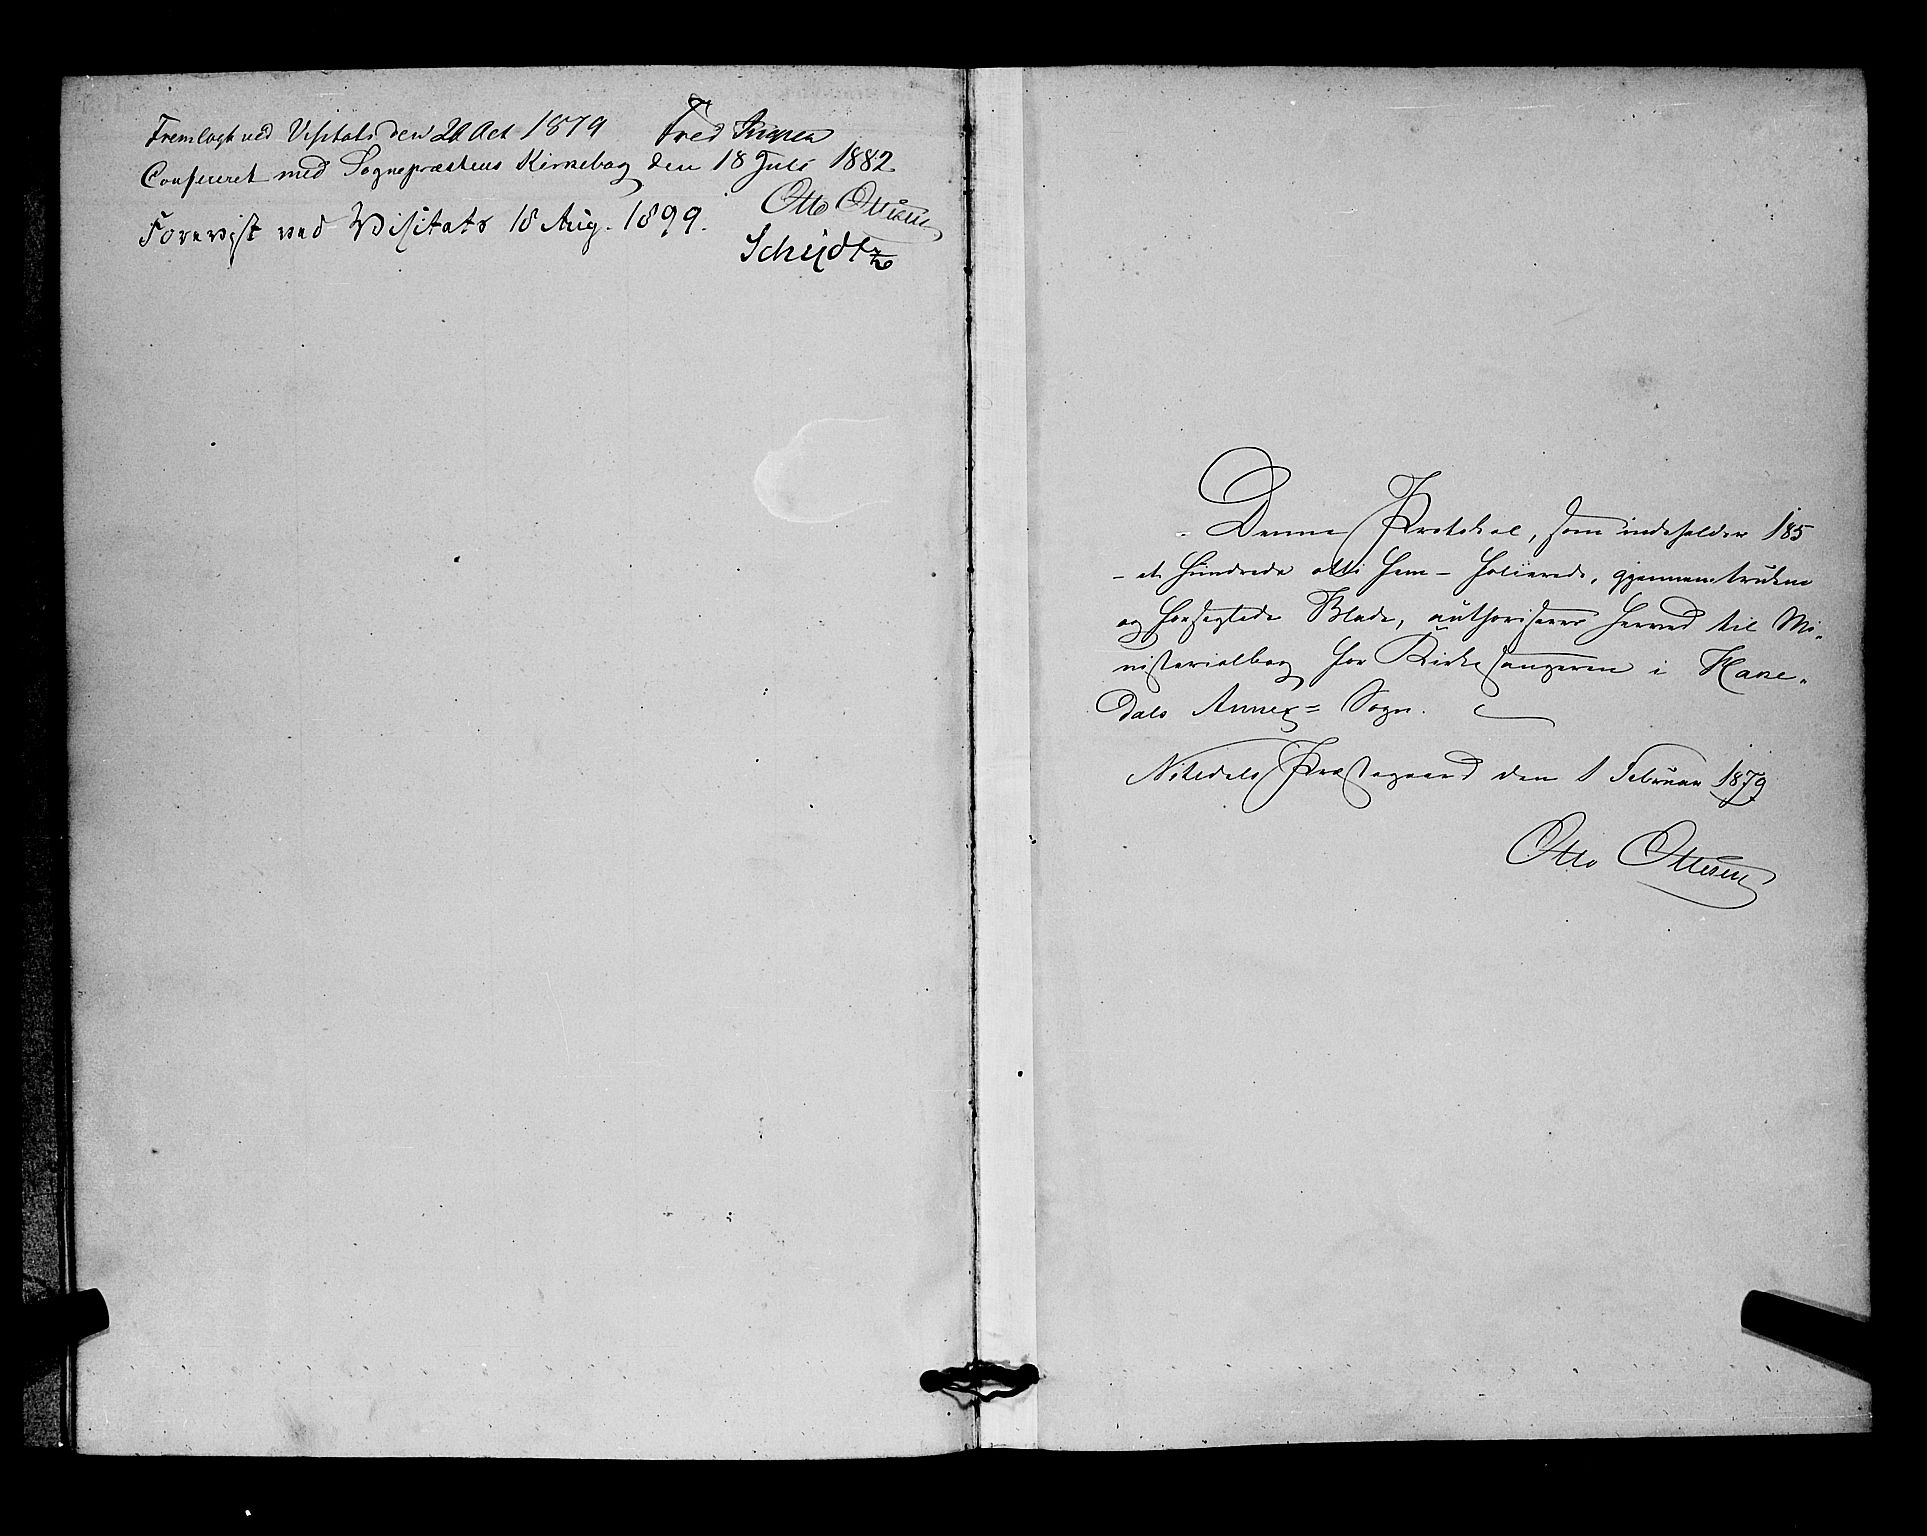 Fremlagt ved Visitats den 20 Oct 1879 Fred
Confereret med Sognepræstens Kirkebog den 18 Juli 1882
Otto Ottesen
Forevist ved Visitats 18 Aug. 1899.
Denne Protokol, som indeholder 185
- et hundrede otti fem - folierede, gjennemtrukne
og forseglede Blade, authoriseres herved til Mi-
nisterialbog for Kirkesangeren i Hake-
dals Annex= Sogn.
Nitedals Præstegaard den 1 Februar 1879
Otto Ottesen